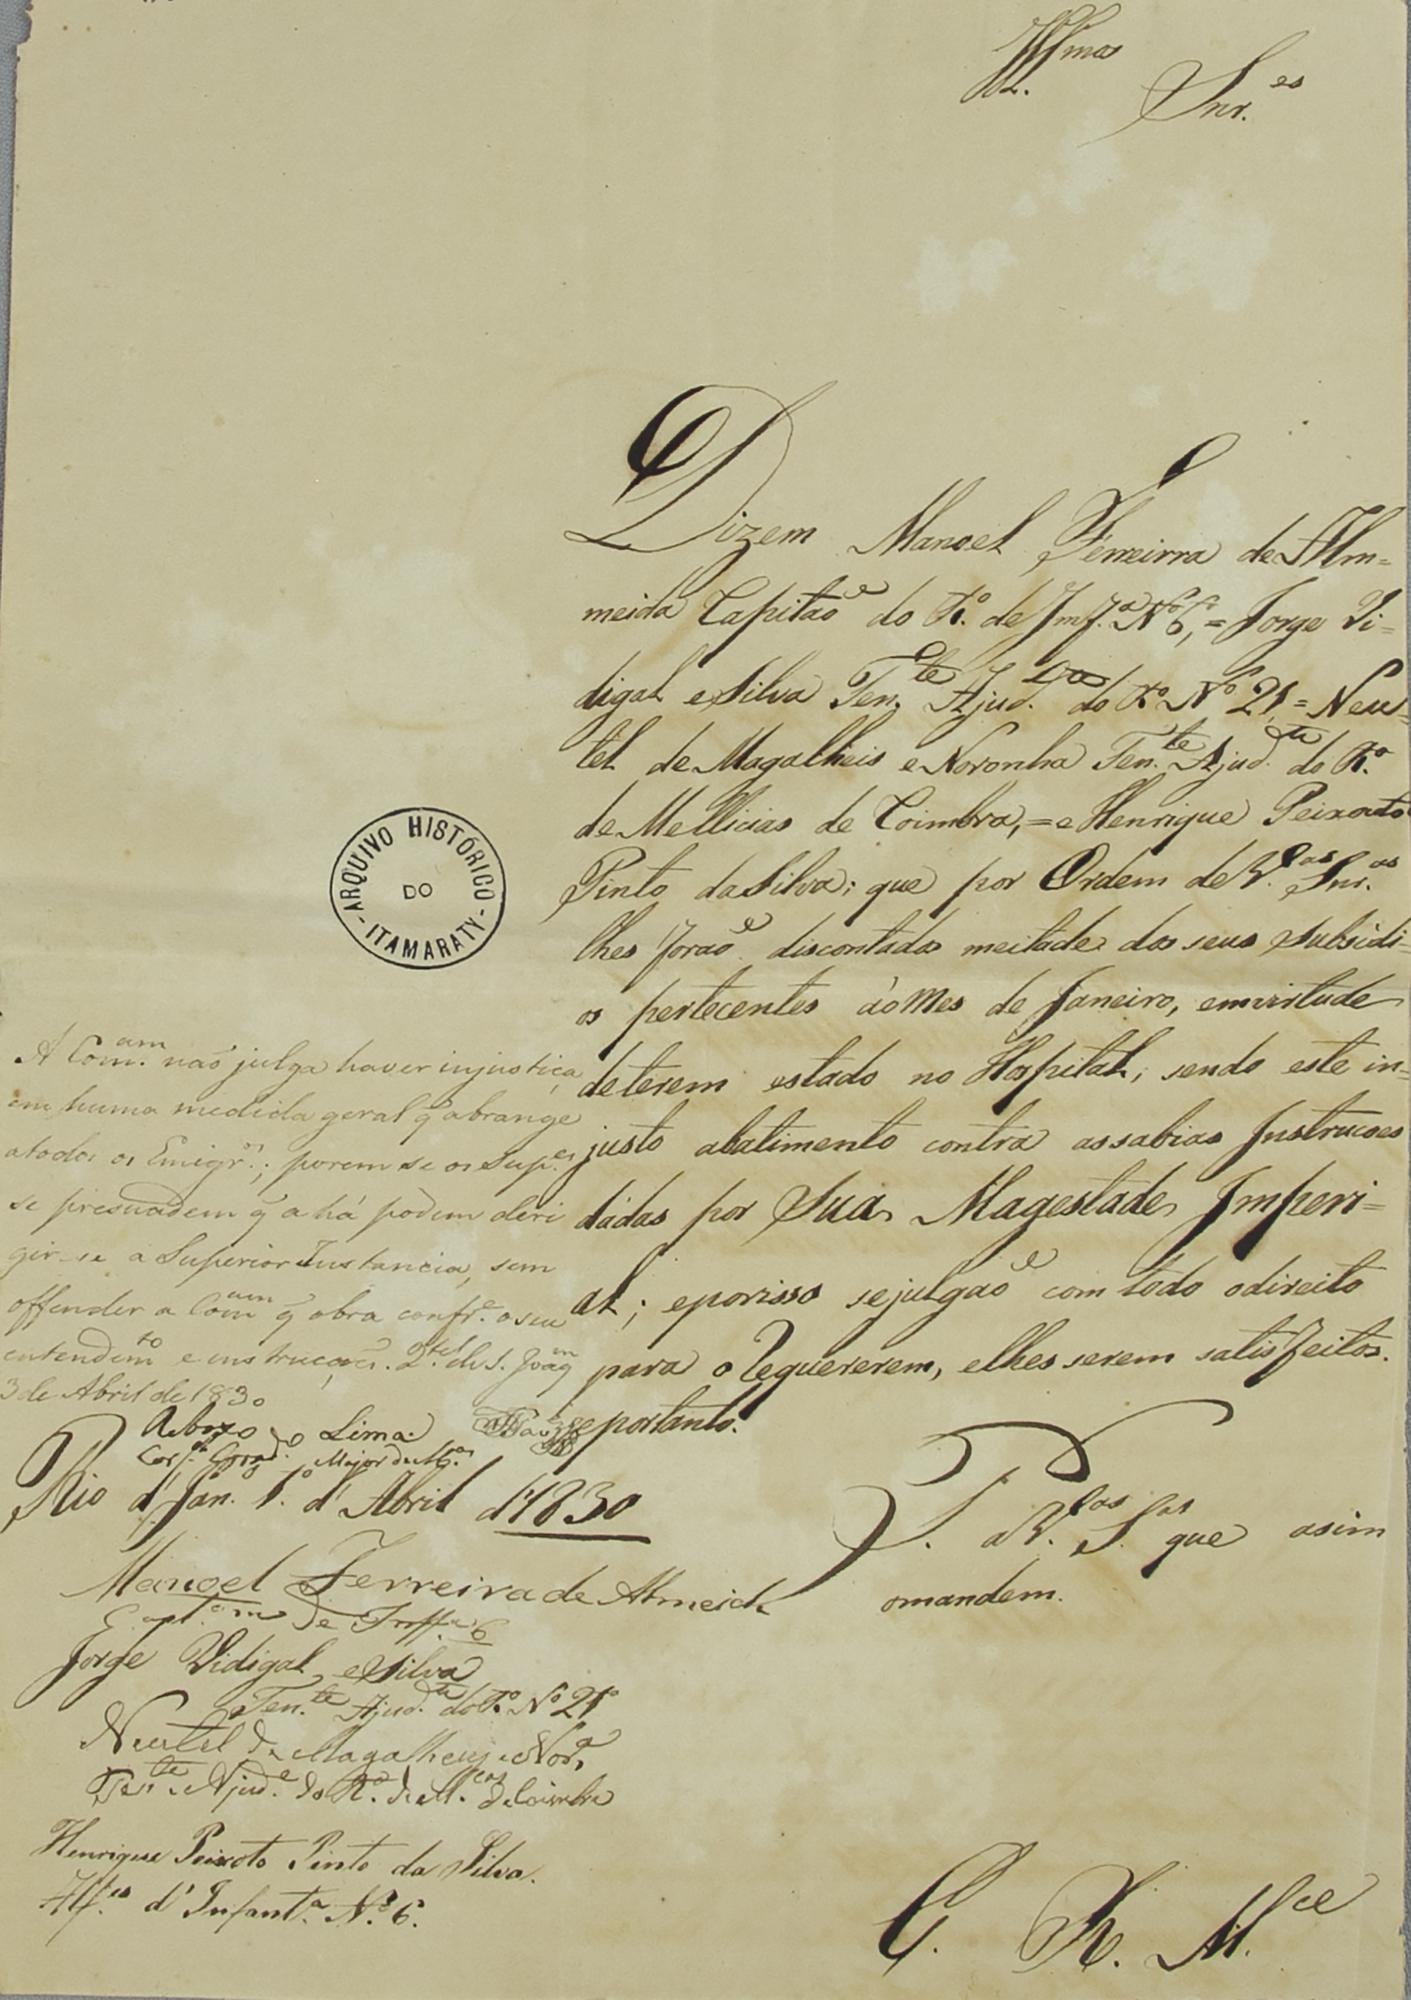 Illmos Snr.es
Dizem Manoel Ferreirra de Alm=
meida Capitaõ do R.º de Imf.ª Nº 6,= Jorge Vi=
digal e Silva Ten.te Ajud. do R.º Nº 21,= Neu=
tel de Magalheis e Noronha Ten.te Ajud.te do R.º
de Mellicias de Coimbra,= e Henrique Peixouto
Pinto da Silva; que por Ordem de V.as Snr.as
lhes foraõ discontados meitade dos seus subsidi=
os pertecentes áo Mes de Janeiro, em virtude
de terem estado no Hospital, sendo este in=
justo abatimento contra as sabias Instrucoes
dádas por Sua Magestade Imperi=
al; e por isso se julgaõ com todo o direito
para o requererem, e lhes serem satisfeitos.
e portanto.
P. a V.as S.as que asim
o mandem.
E. R. M.ce
ARQUIVO HISTÓRICO
DO
- ITAMARATY -
A Com.am naõ julga haver injustiça
em huma medida geral q̃ abrange
a todos os Emigr.os; porem se os Sup.es
se presuadem q̃ a há podem deri
gir-se a Superior Instancia, sem
offender a Com.am q̃ obra conf.e o seu
entendim.to e instrucções. Q.tel de S. Joaq.m
3 de Abril de 1830
Lima
Major de
Rio d'Jan.º 1.º d'Abril d'1830
Manoel Ferreira de Almeida
Capt.am de Inff.ª 6
Jorge Vidigal e Silva
Ten.te Ajud.te do R.º Nº 21º
Neutel de Magalheis e Nor.ª
Ten.te Ajud.e do R.º de M.cas de Coimbra
Henrique Peixoto Pinto da Silva.
Alf.es d'Infant.ª N.º 6.